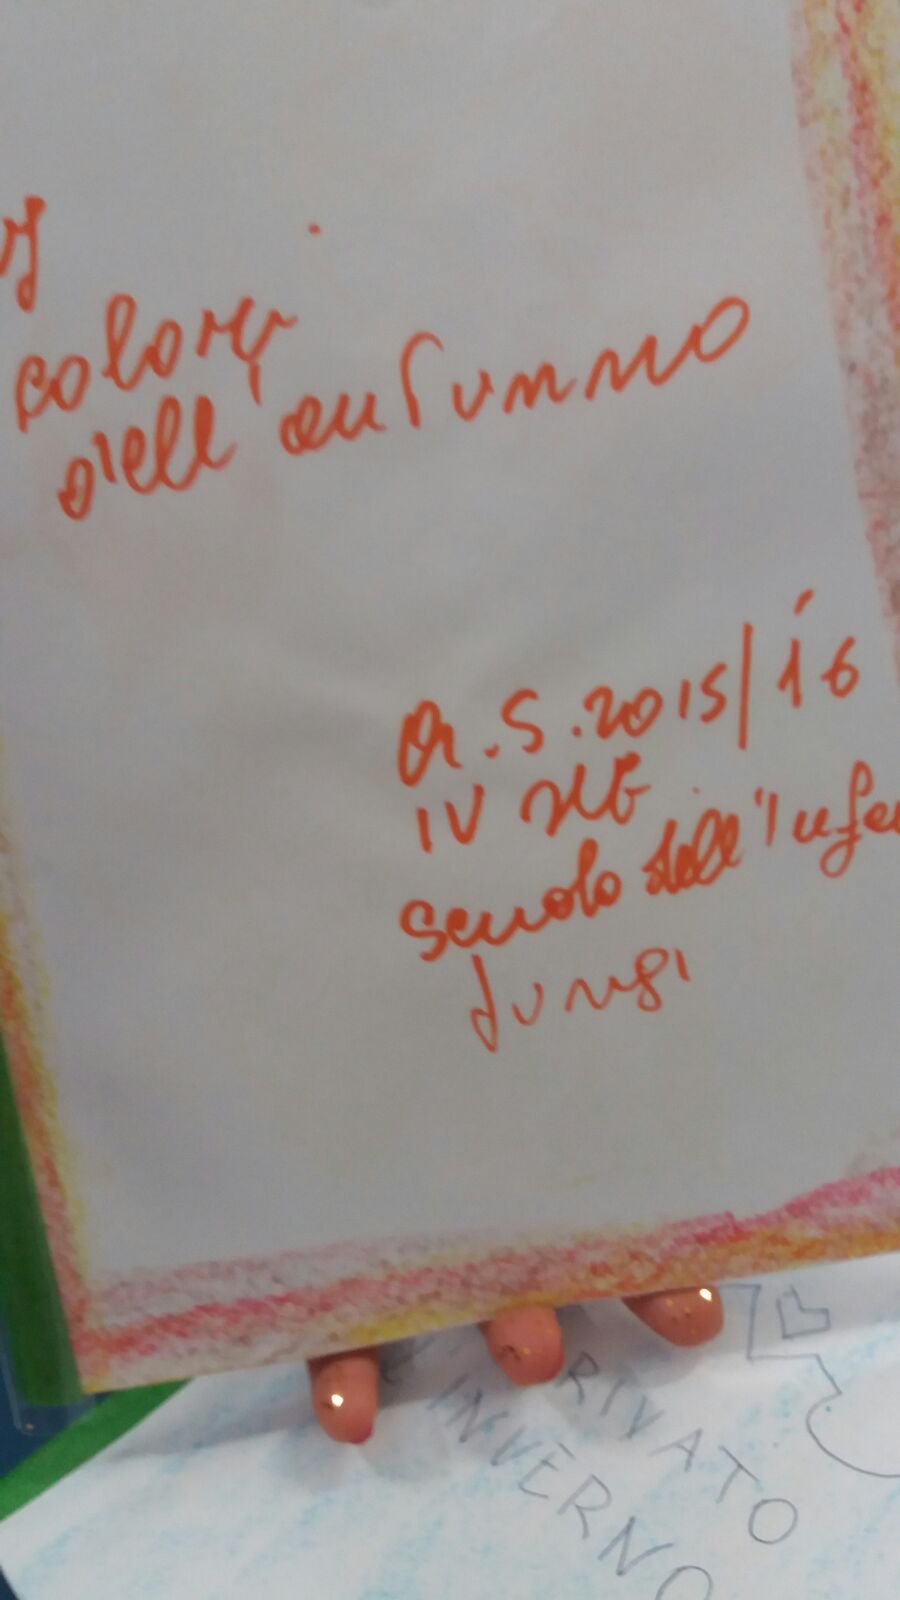 I
colori
dell'autunno
A.S. 2015/16
IV
Scuola dell'Infan
Jungi
ARRIVATO
INVERNO